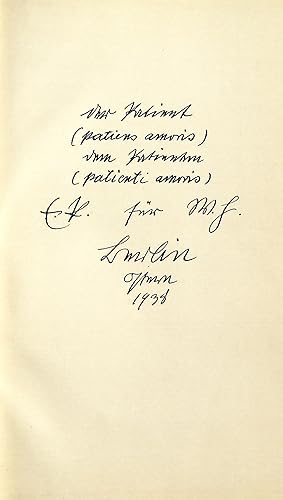 der Patient
(patiens amoris)
dem Patienten
(patienti amoris)
E.P. für W.H.
Berlin
Ostern
1938